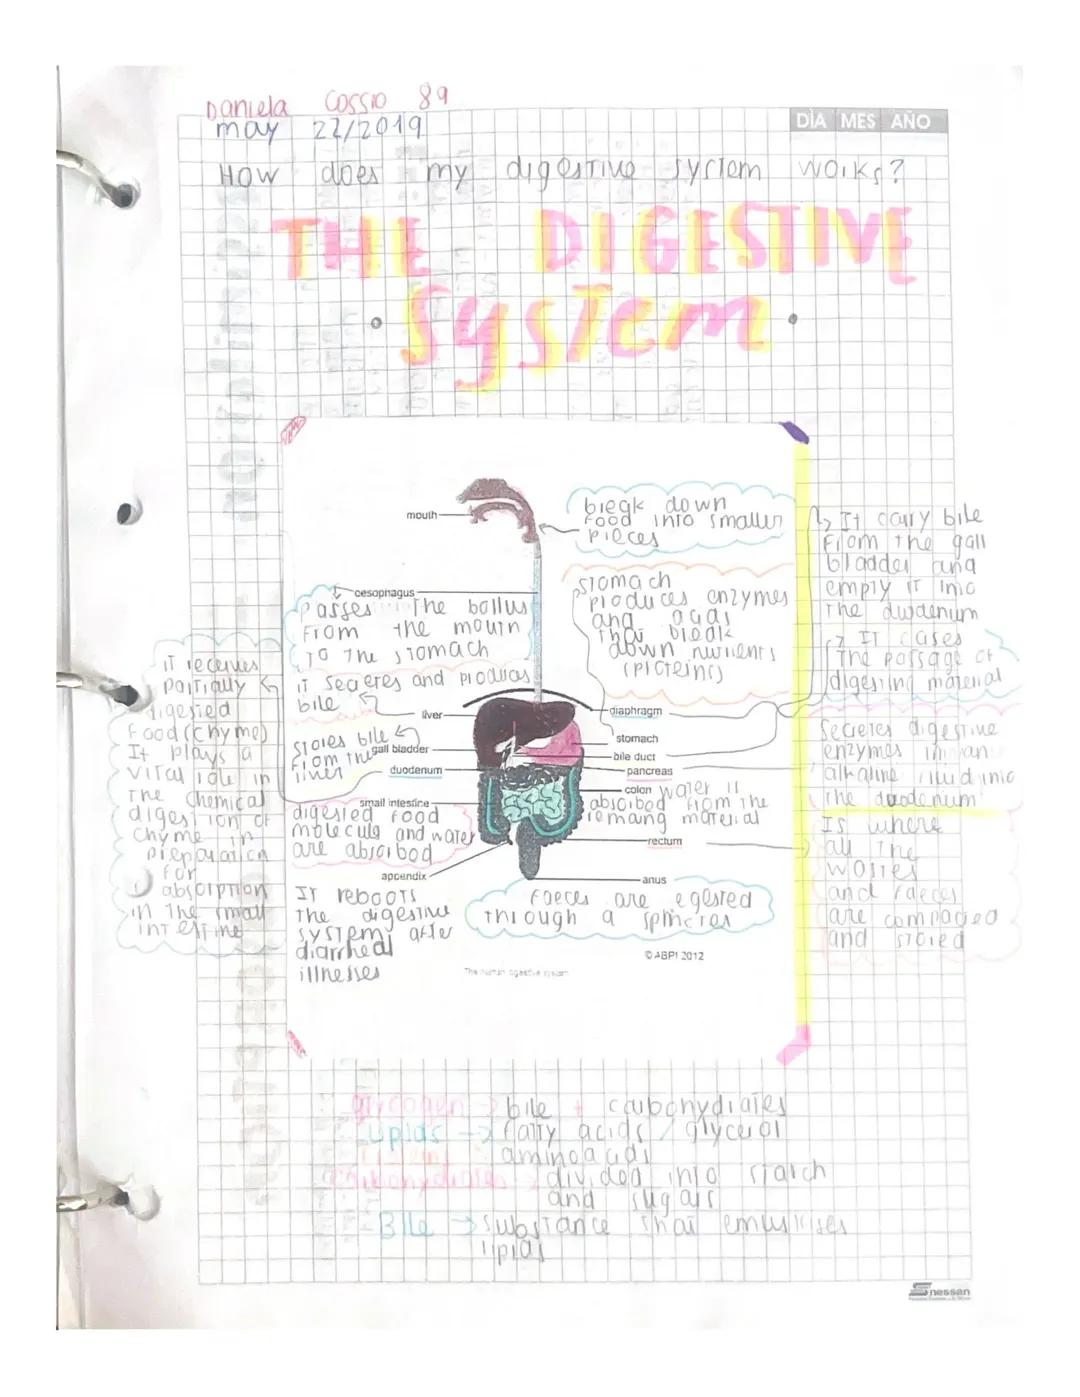 Daniela Cossio 89
may 22/2019
DÍA MES AÑO
How does my digestive system works?
THE DIGESTIVE
System
mouth
break down
food into smaller
pieces
oesophagus
Passes the bollus
from the mouth
to the stomach
stomach
produces enzymes
and acids
that break
down nutrients
(proteins)
It carry bile
from the gall
bladder and
empty it into
the duodenum
It cases
the passage of
digesting material
It receives
partially
digested
food (chyme)
It plays a
vital role in
the chemical
digestion of
chyme in
preparation
for
absorption
in the small
intestine
it secretes and produces
bile
liver
stores bile
from the
liver
gall bladder
duodenum
small intestine
digested food
molecule and water
are absorbed
appendix
It reboots
the digestive
system after
diarrheal
illnesses
diaphragm
stomach
bile duct
pancreas
colon
water is
absorbed from the
remaing material
rectum
anus
faeces are egested
through a
Secretes digestive
enzymes in an
alkaline fluid into
the duodenum
Is where
all the
wastes
and faeces
are compacted
and stored
© ABPI 2012
The human digestive system
glycogen → bile + carbohydrates
Lipids → fatty acids / glycerol
aminoacids
carbohydrates divided into starch
and sugars
Bile → substance that emulsifies
lipids
nessan